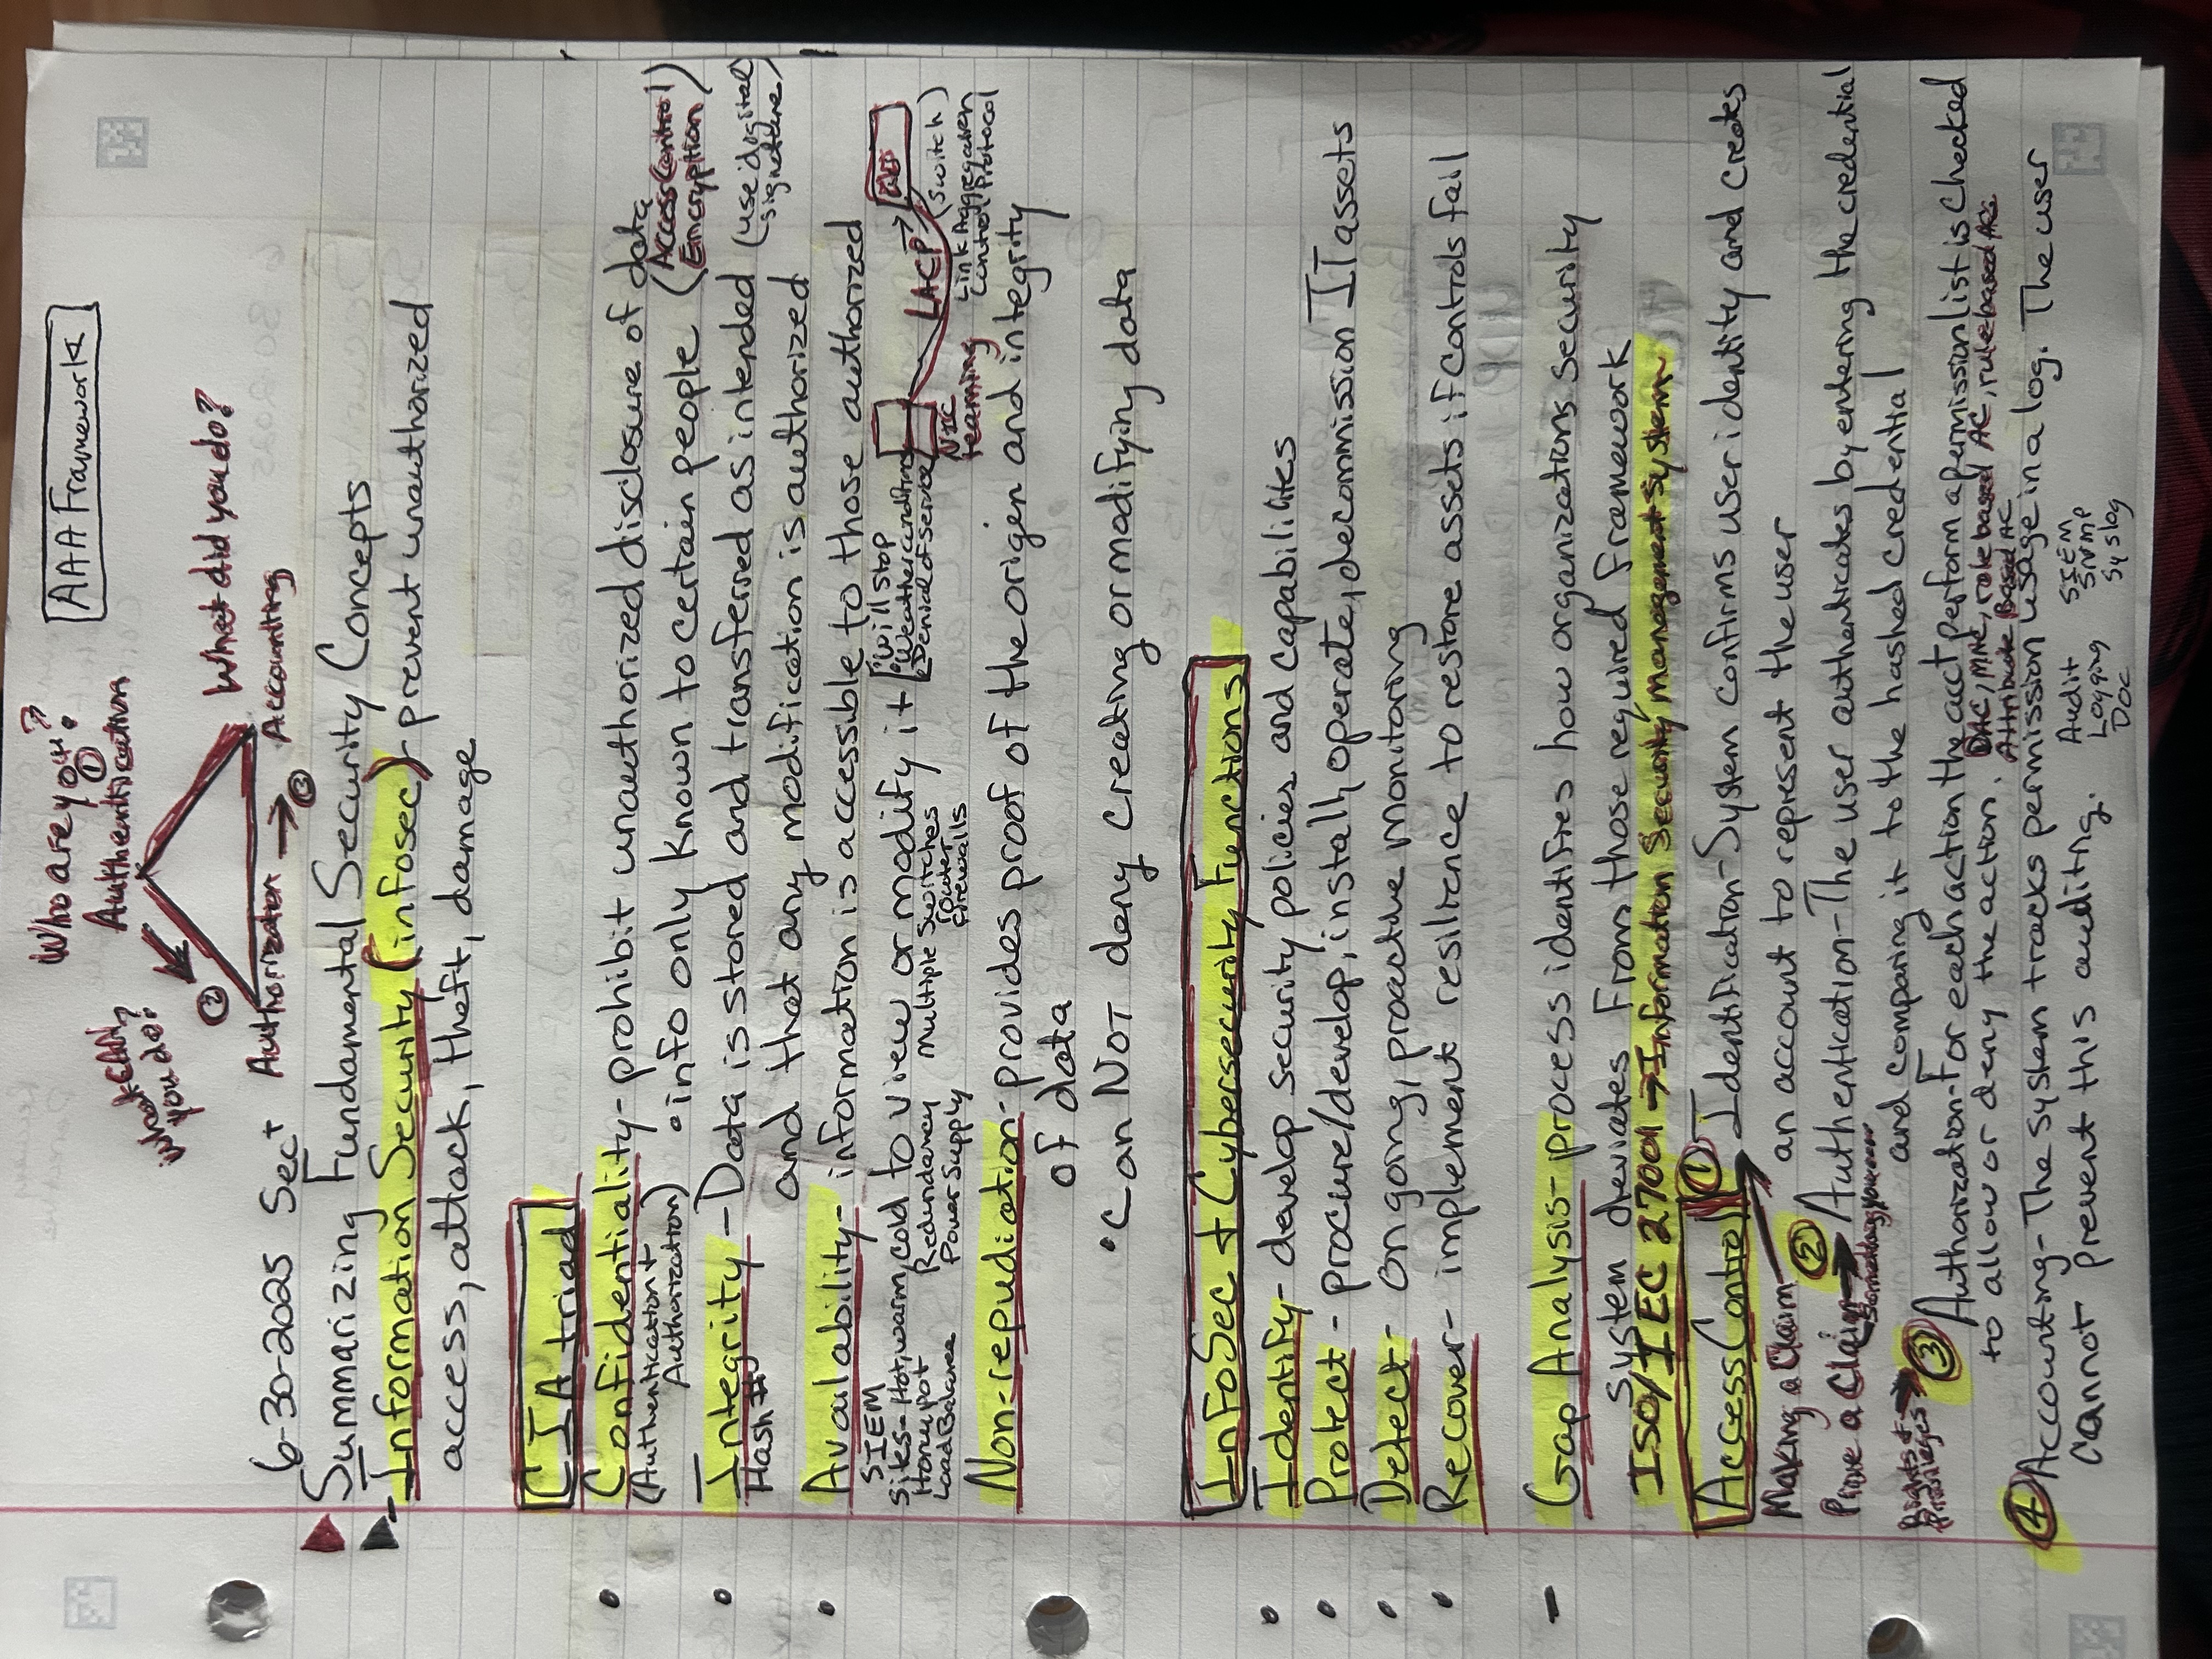 Who are you?
AAA Framework
①
Authentication
What CAN
you do?
②
What did you do?
6-30-2025 Sec+
Authorization → Accounting
③
Summarizing Fundamental Security Concepts
- Information Security (infosec) - prevent unauthorized
access, attack, theft, damage
CIA triad
• Confidentiality - prohibit unauthorized disclosure of data
(Authentication +
Authorization)
• info only known to certain people (Access Control
Encryption)
• Integrity - Data is stored and transferred as intended (use digital
signature)
Hash #
and that any modification is authorized
• Availability - information is accessible to those authorized
SIEM
to view or modify it
Sites - Hot, warm, cold
Honeypot
Load Balance
Redundancy
Power Supply
Multiple Switches
router
firewalls
• will stop
• Weather conditions
• Denial of Service
NIC
teaming
LACP → (switch)
Link Aggregation
Control Protocol
Non-repudiation - provides proof of the origen and integrity
of data
• Can NOT deny creating or modifying data
InFoSec + Cybersecurity Functions
• Identify - develop security policies and capabilites
• Protect - procure/develop, install, operate, decommission IT assets
• Detect - on going, proactive monitoring
• Recover - implement resilience to restore assets if controls fail
- Gap Analysis - process identifies how organizations security
system deviates from those required framework
ISO/IEC 27001 → Information Security Management System
Access Control ① Identification - System confirms user identity and creates
Making a Claim → an account to represent the user
②
Prove a Claim → Authentication - The user authenticates by entering the credential
Something you
and comparing it to the hashed credential
Rights +
Privileges →
③ Authorization - For each action the acct perform a permission list is checked
to allow or deny the action. DAC, MAC, role based AC, rule based AC
Attribute Based AC
④ Accounting - The system tracks permission usage in a log. The user
cannot prevent this auditing.
Audit
Logging
Doc
SIEM
SNMP
Syslog